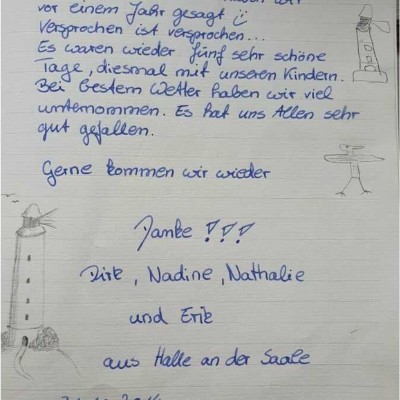 wir
vor einem Jahr gesagt
Versprochen ist versprochen...
Es waren wieder fünf sehr schöne
Tage, diesmal mit unseren Kindern.
Bei bestem Wetter haben wir viel
unternommen. Es hat uns Allen sehr
gut gefallen.
Gerne kommen wir wieder
Danke !!!
Dirk, Nadine, Nathalie
und Erik
aus Halle an der Saale